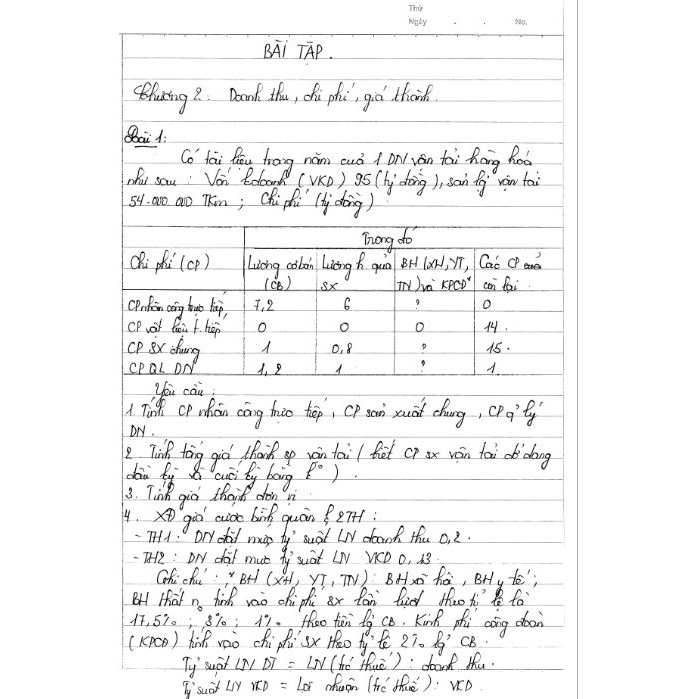 Thứ
Ngày . . No.
BÀI TẬP.
Chương 2: Doanh thu, chi phí, giá thành.
Bài 1:
Có tài liệu trong năm của 1 DN vận tải hàng hoá
như sau: Vốn kdoanh (VKD) 95 (tỷ đồng), sản lg̣ vận tải
54.000.000 TKm; Chi phí (tỷ đồng)
Trong đó
Chi phí (CP) Lương cơ bản (CB) Lương h. quả SX BH (XH, YT, TN) và KPCĐ* Các CP còn lại
CP nhân công trực tiếp 7,2 6 ? 0
CP vật liệu t. tiếp 0 0 0 14.
CP SX chung 1 0,8 ? 15.
CP QL DN 1,2 1 ? 1
Yêu cầu:
1. Tính CP nhân công trực tiếp, CP sản xuất chung, CP q̉ lý
DN.
2. Tính tổng giá thành sp vận tải (biết CP sx vận tải dở dang
đầu kỳ và cuối kỳ bằng ko).
3. Tính giá thành đơn vị
4. XĐ giá cước bình quân 2TH:
- TH1: DN đặt mức tỷ suất LN doanh thu 0,2.
- TH2: DN đặt mức tỷ suất LN VKD 0,13.
Ghi chú: * BH (XH, YT, TN): BH xã hội, BH y tế;
BH thất n. tính vào chi phí SX lần lượt theo tỉ lệ là
17,5%; 3%; 1% theo tiền lg CB. Kinh phí công đoàn
(KPCĐ) tính vào chi phí SX theo tỷ lệ 2% lg CB.
Tỷ suất LN DT = LN (trc thuế) : doanh thu.
Tỷ suất LN VKD = Lợi nhuận (trc thuế) : VKD.